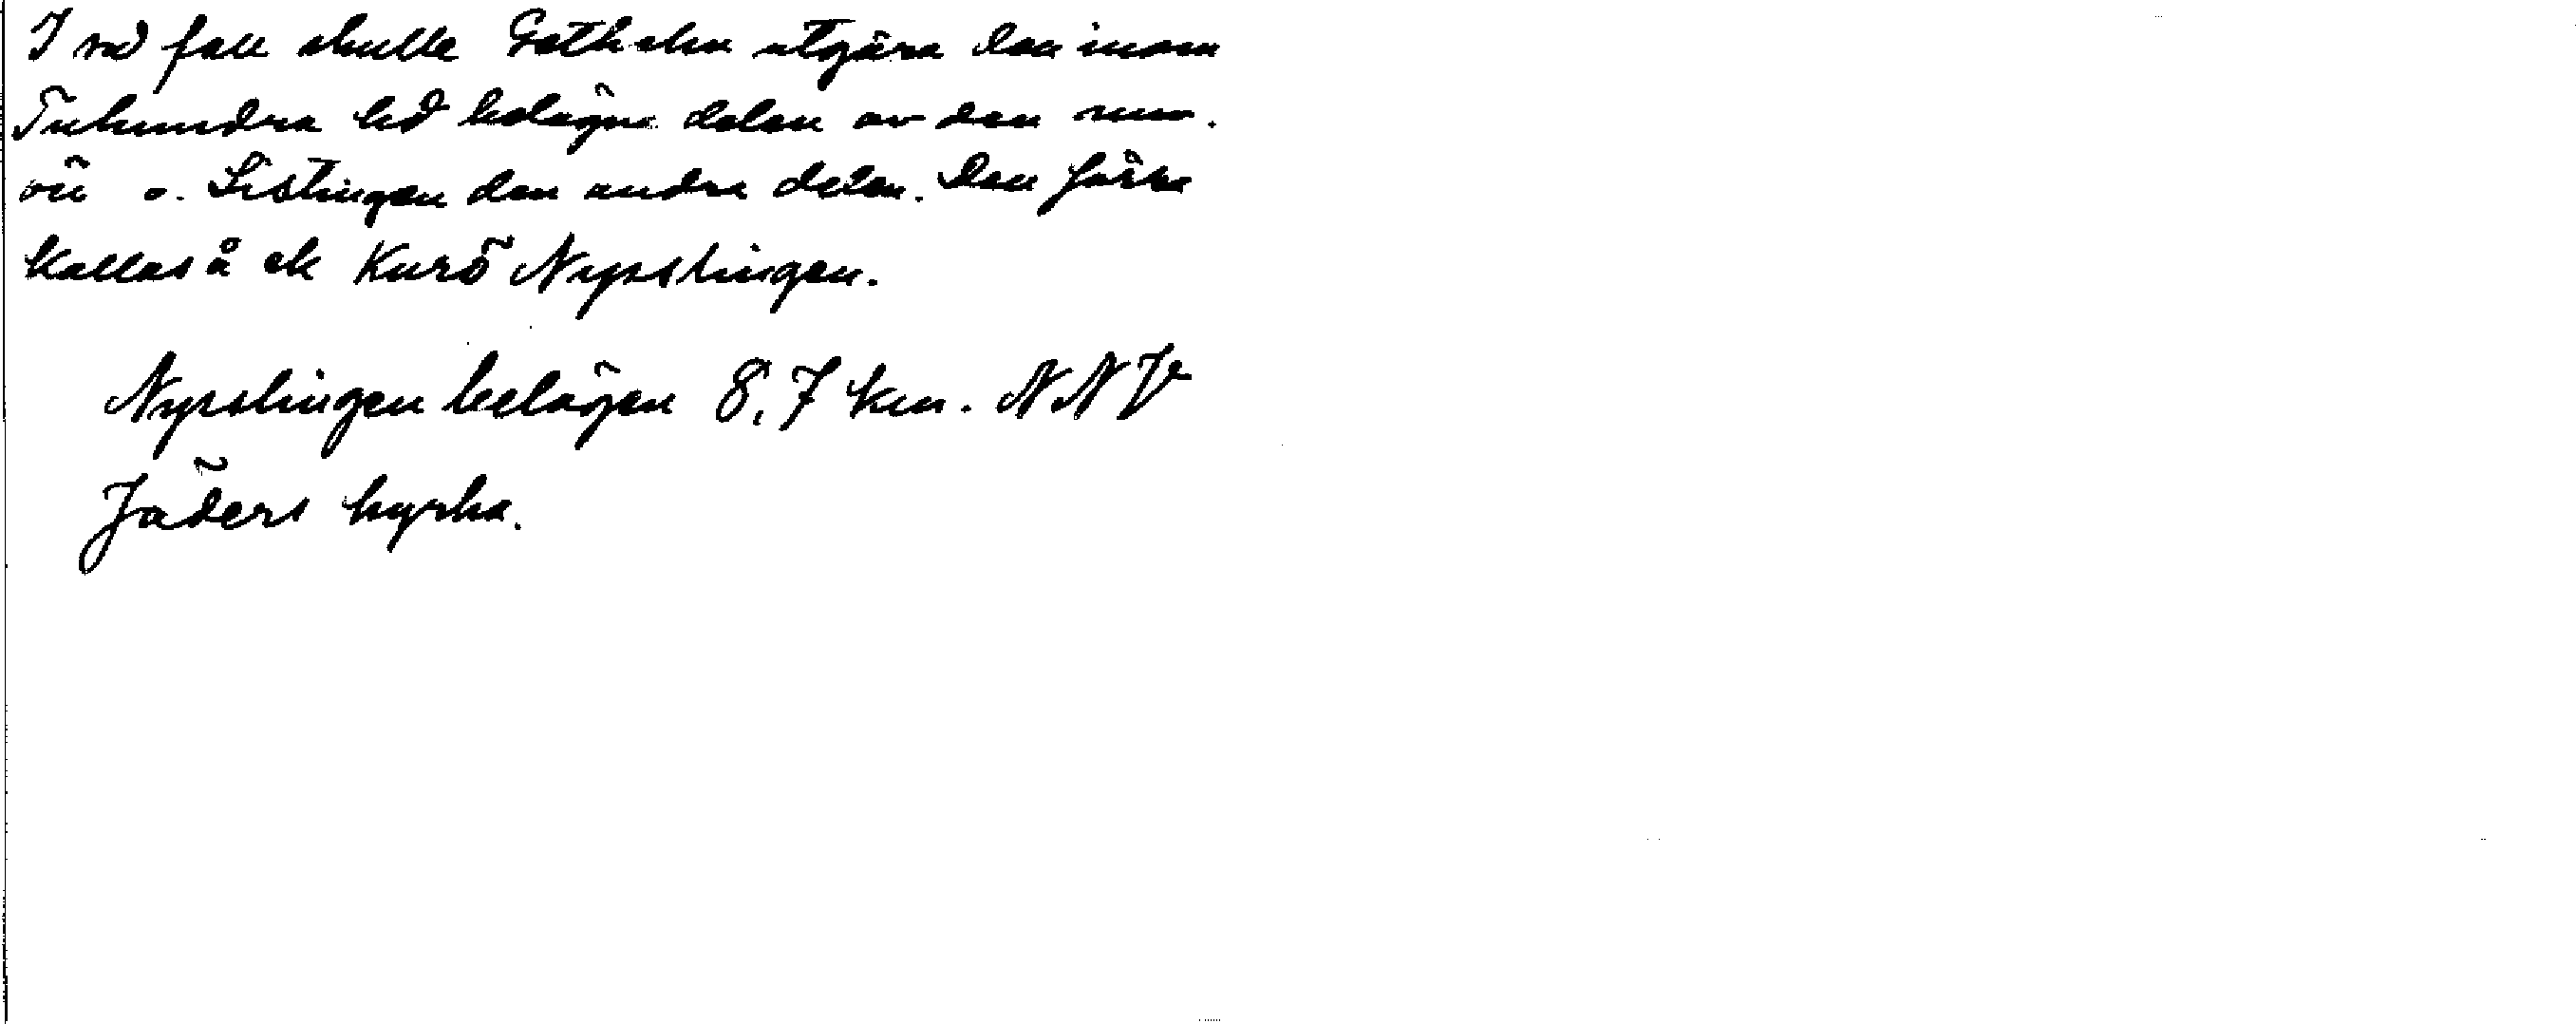 I så fall skulle Gotholm utgöra den inom
Tuhundra hd belägna delen av den nuv.
ön o. Listingen den andra delen. Den förra
kallas å ek Kurö Nysslingen.
Nysslingen belägen 8,7 km. NNV
Jäders kyrka.